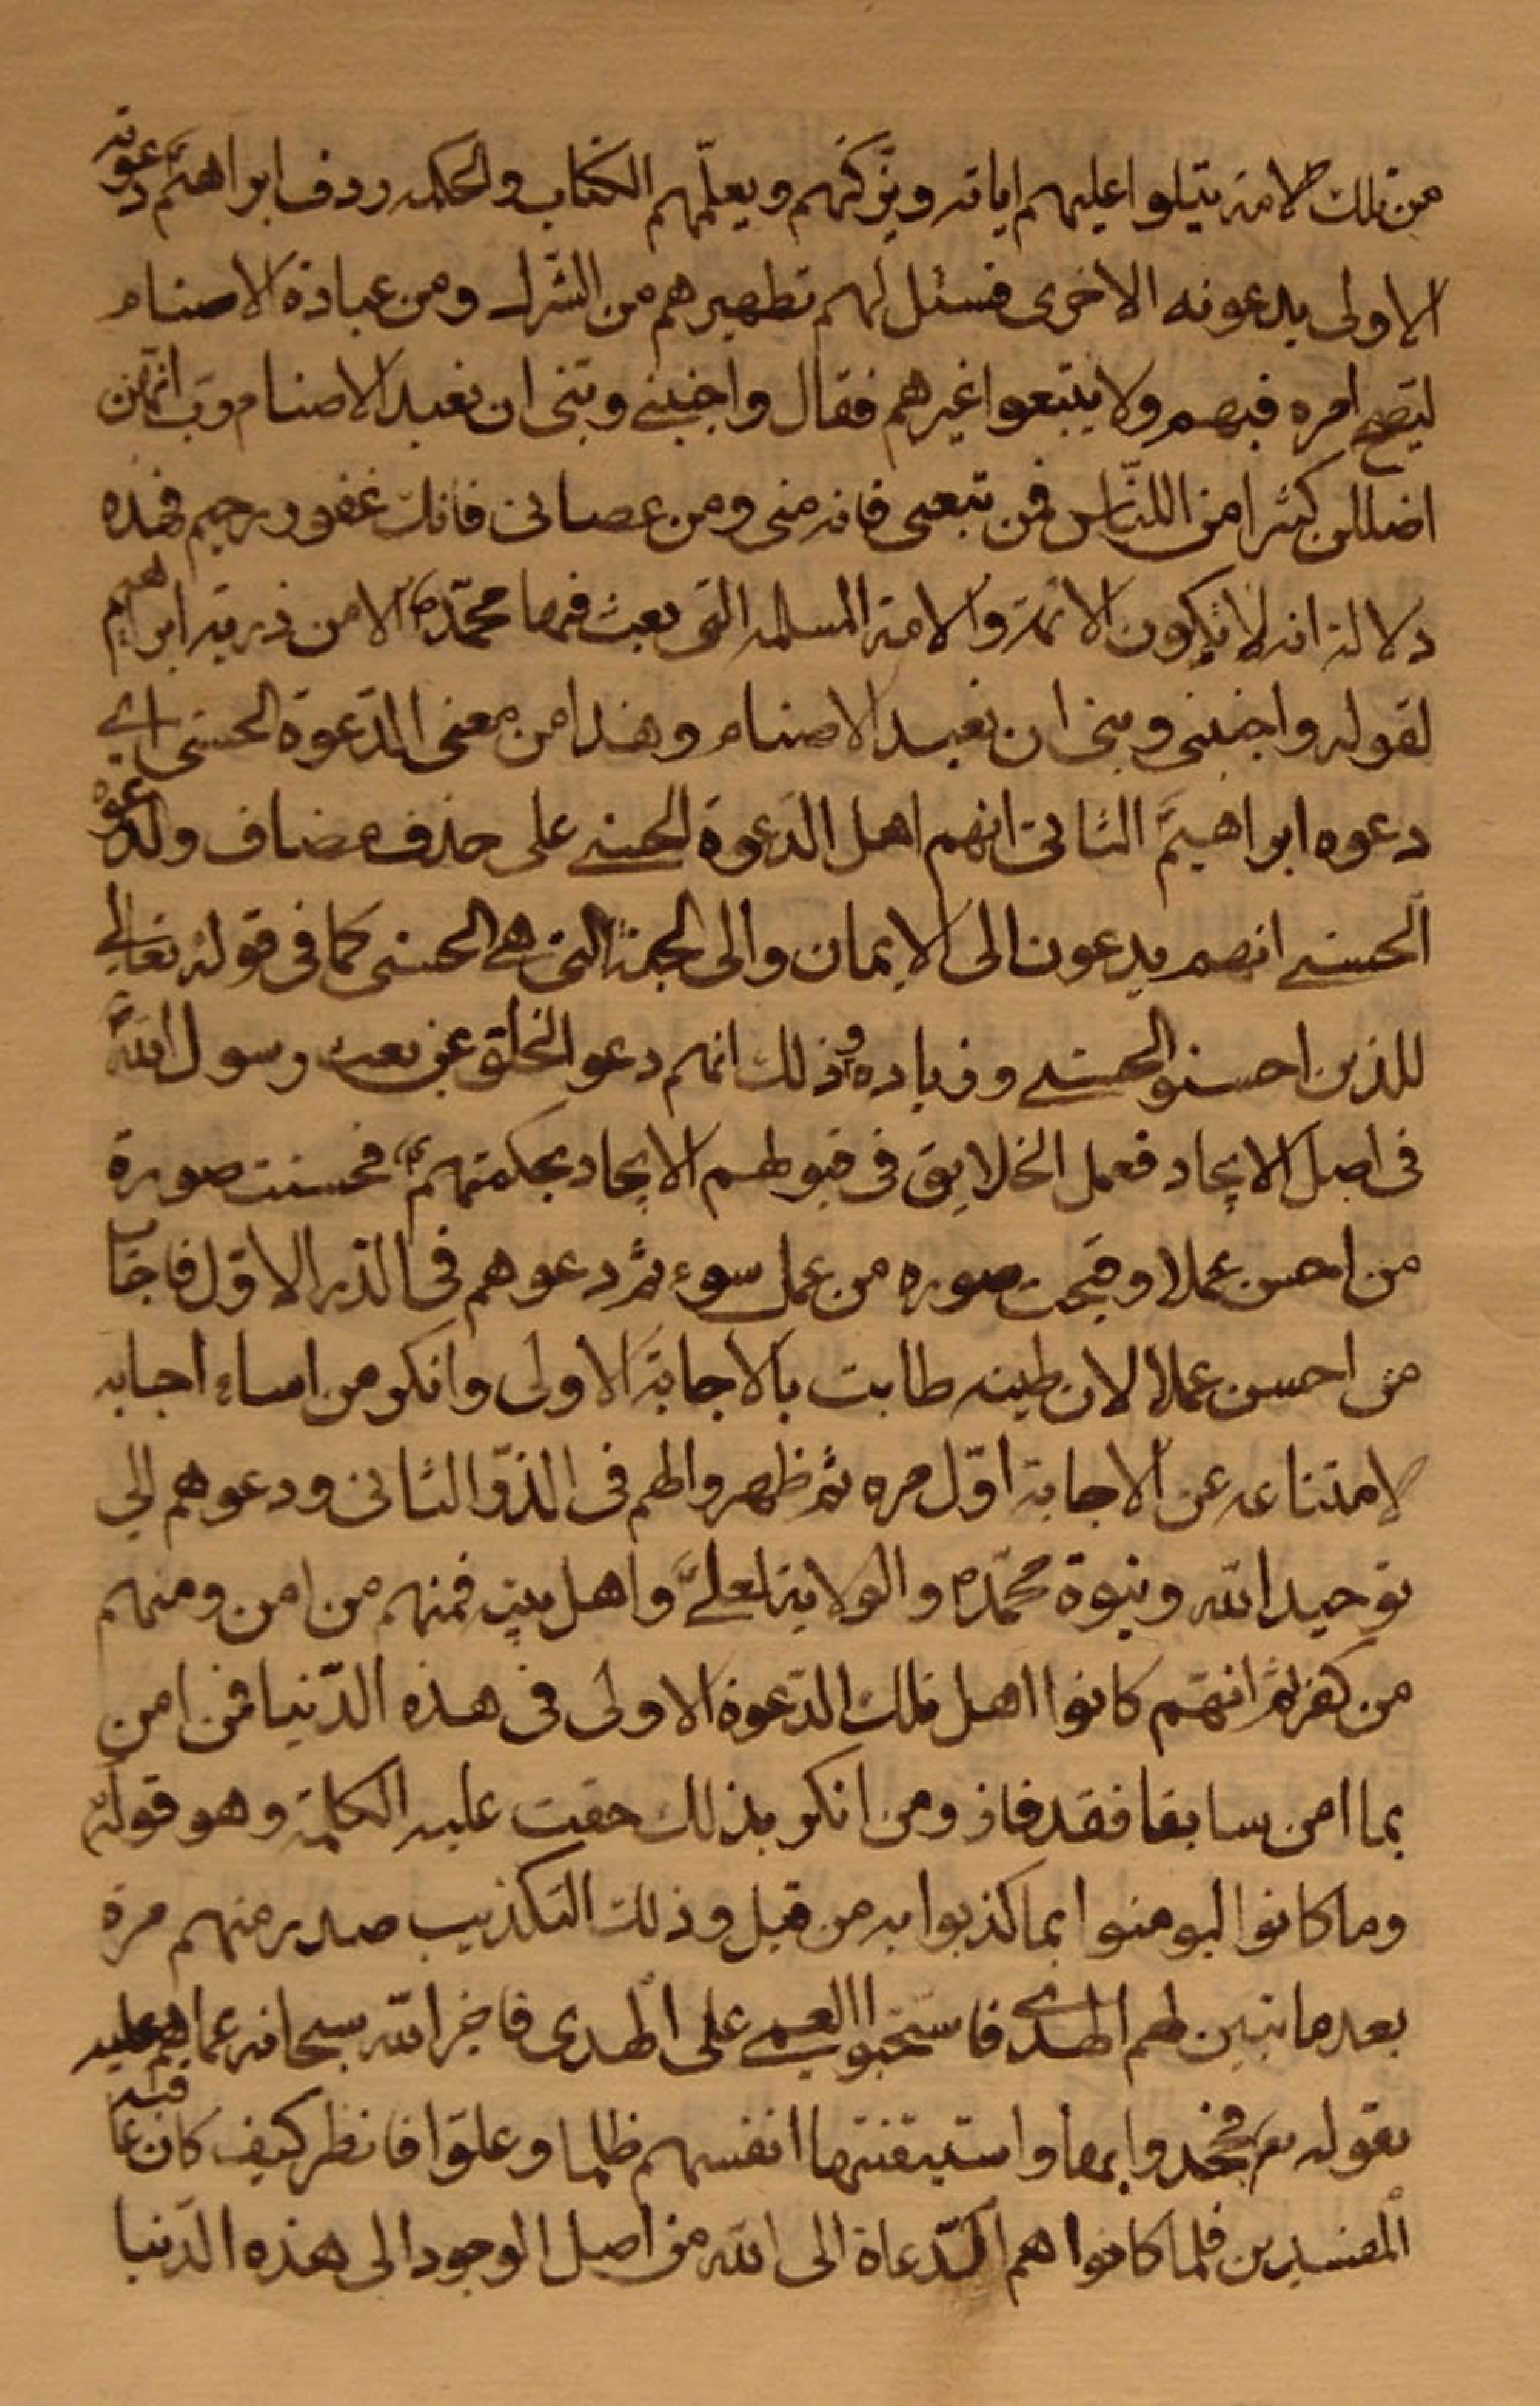 من تلك الامة يتلوا عليهم اياته ويزكيهم ويعلّمهم الكتاب والحكمه ردف ابراهيم دعوته
الاولى بدعوته الاخرى فسئل لهم تطهيرهم من الشرك ومن عبادة الاصنام
ليصح امره فيهم ولا يتبعوا غيرهم فقال واجنبنى وبنى ان نعبد الاصنام رب انهن
اضللن كثيرا من الناس فمن تبعنى فانه منى ومن عصانى فانك غفور رحيم فهذه
دلالة انه لا تكون الائمة والامة المسلمه التى بعث فيها محمّد ص الا من ذرية ابراهيم
لقوله واجنبنى وبنى ان نعبد الاصنام وهذا من معنى الدّعوة الحسنى اى
دعوه ابراهيم الثانى انهم اهل الدّعوة الحسنى على حذف مضاف والدعوه
الحسنى انهم يدعون الى الايمان والى الجنة التى هى الحسنى كما فى قوله تعالى
للذين احسنوا الحسنى وزياده وذلك انهم دعوا الخلق عن بعث رسول الله
فى اصل الايجاد فعمل الخلايق فى قبولهم الايجاد بحكمتهم فحسنت صورة
من احسن عملا وقبحت صوره من عمل سوء ثم دعوهم فى الذر الاوّل فاجاب
من احسن عملا لان طينه طابت بالاجابة الاولى وانكر من اساء اجابه
لامتناعه عن الاجابة اوّل مره ثم ظهروا لهم فى الذرّ الثانى ودعوهم الى
توحيد الله ونبوة محمّد ص والولاية لعلى واهل بيته فمنهم من امن ومنهم
من كفر ثم انهم كانوا اهل تلك الدّعوة الاولى فى هذه الدّنيا فمن امن
بما امن سابقا فقد فاز ومن انكر بذلك حقت عليه الكلمة وهو قوله
وما كانوا ليومنوا بما كذبوا به من قبل وذلك التكذيب صدر منهم مرة
بعد ما تبين لهم الهدى فاستحبوا العمى على الهدى فاخبر الله سبحانه عما هم عليه
بقوله تع فجحدوا بها واستيقنتها انفسهم ظلما وعلوّا فانظر كيف كان عاقبة
المفسدين فلما كانوا هم الدّعاة الى الله من اصل الوجود الى هذه الدّنيا